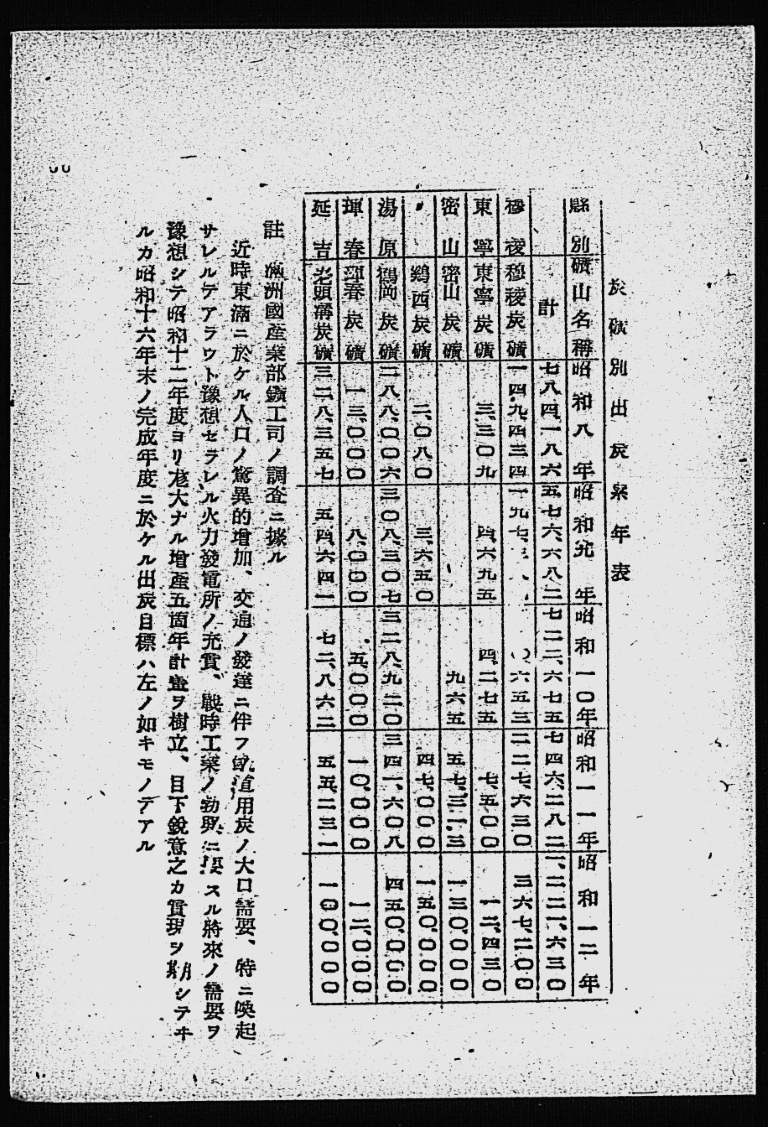 炭礦別出炭累年表
縣別 礦山名稱 昭和八年 昭和九年 昭和一〇年 昭和一一年 昭和一二年
計 七八四、一八六 五七六、六八二 七二二、六七五 七四六、二八二 一、二二一、六三〇
穆稜 穆稜炭礦 一四九、四三四 二二七、六三〇 三六七、二〇〇
東寧 東寧炭礦 三、三〇九 四、六九五 四、二七五 七、五〇〇 一二、四三〇
密山 密山炭礦 九六五 五七、三一三 一三〇、〇〇〇
〃 鷄西炭礦 二、〇八〇 三、六五〇 四七、〇〇〇 一五〇、〇〇〇
湯原 鶴岡炭礦 二八八、〇〇六 三〇八、三〇七 三二八、九二〇 三四一、六〇八 四五〇、〇〇〇
琿春 琿春炭礦 一三、〇〇〇 八、〇〇〇 五、〇〇〇 一〇、〇〇〇 一二、〇〇〇
延吉 老頭溝炭礦 三二八、三五七 五四、六四一 七二、八六二 五五、二三一 一〇〇、〇〇〇
註 滿洲國產業部鑛工司ノ調査ニ據ル
近時東滿ニ於ケル人口ノ驚異的增加、交通ノ發達ニ伴フ鐵道用炭ノ大口需要、特ニ喚起
サレルデアラウト豫想セラレル火力發電所ノ充實、戰時工業ノ勃興ニ要スル將來ノ需要ヲ
豫想シテ昭和十二年度ヨリ尨大ナル增產五箇年計畫ヲ樹立、目下銳意之カ實現ヲ期シテヰ
ルカ昭和十六年末ノ完成年度ニ於ケル出炭目標ハ左ノ如キモノデアル